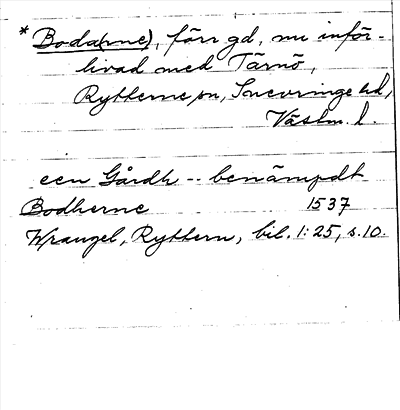 * Boda(rne), förr gd, nu inför-
livad med Tärnö,
Rytterne sn, Snevringe hd,
Västm. l.
een Gårdh -- benämpdt
Bodherne 1537
Wrangel, Ryttern, bil. 1:25, s. 10.